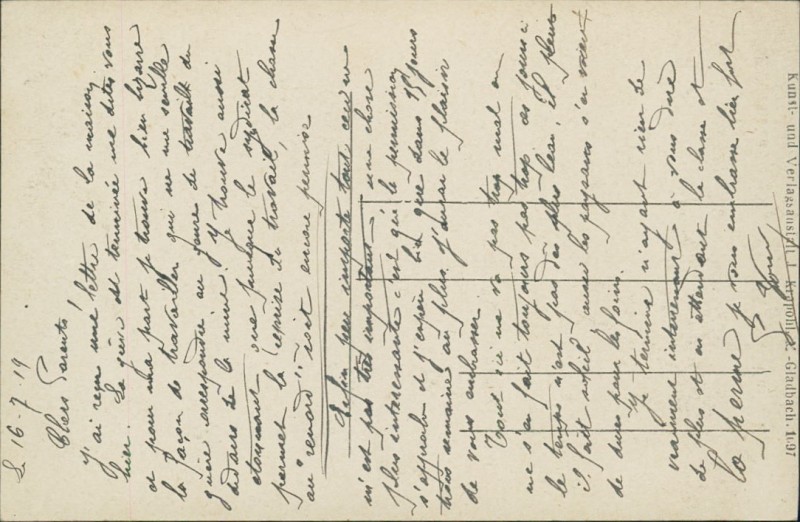 Le 16-7-19
Chers Parents
J'ai reçu une lettre de la maison
hier. La grève est terminée me dites vous
et pour ma part je trouve bien bizarre
la façon de travailler qui ne me semble
guère correspondre au genre de travail du
dedans de la mine. J'y trouve aussi
étonnant que puisque le syndicat
permet la reprise du travail, la chasse
au "renard" soit encore permise
Enfin peu importe tout ceci
m'est pas très important une chose
plus intéressante c'est que le permission
s'approche et j'espère bien que dans 15 jours
trois semaines au plus j'aurai le plaisir
de vous embrasser.
Tout ici ne va pas trop mal on
ne s'en fait toujours pas trop ces jours ci
le temps n'est pas des plus beau, il pleut
il fait soleil, aussi les paysans s'en voient
de dures pour les foins.
Je termine n'ayant rien de
vraiment intéressant à vous dire
de plus et en attendant la classe et
la perme je vous embrasse bien fort
Kunst- und Verlagsanstalt J. -Gladbach. 1697